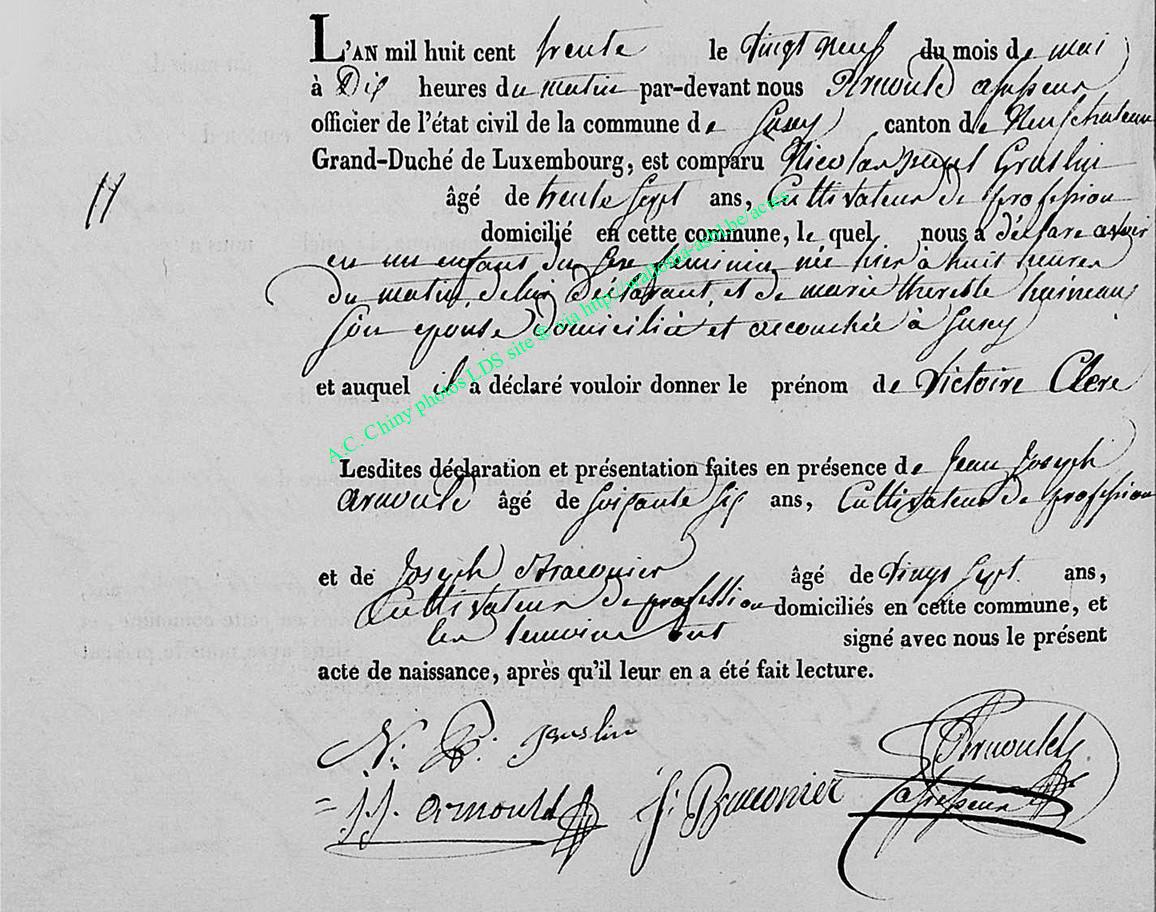 L'AN mil huit cent trente le vingt neuf du mois de mai
à Dix heures du matin par-devant nous Arnould assesseur
officier de l'état civil de la commune de Suxy canton de Neufchateau
Grand-Duché de Luxembourg, est comparu Nicolas paul Graslin
11
âgé de trente sept ans, Cultivateur de profession
domicilié en cette commune, le quel nous a déclaré avoir
eu un enfant du sexe feminin née hier à huit heures
du matin, de lui déclarant, et de marie therese haineaux
son epouse domiciliée et accouchée à Suxy
et auquel il a déclaré vouloir donner le prénom de Victoire Clere
A.C. Chiny photos LDS site & via http://wallonia-asbl.be/actes
Lesdites déclaration et présentation faites en présence de Jean Joseph
arnould âgé de soixante six ans, Cultivateur de profession
et de Joseph Braconier âgé de vingt sept ans,
Cultivateur de profession domiciliés en cette commune, et
les temoins ont signé avec nous le présent
acte de naissance, après qu'il leur en a été fait lecture.
N: P: graslin
Arnould
J.J. arnould J: Braconier assesseur